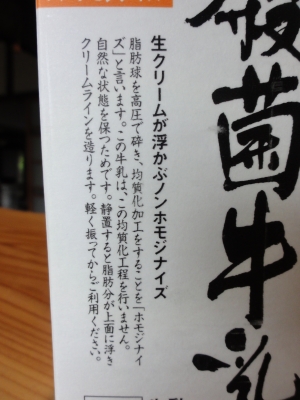 殺菌牛乳
生クリームが浮かぶノンホモジナイズ
脂肪球を高圧で砕き、均質化加工をすることを「ホモジナイ
ズ」と言います。この牛乳は、この均質化工程を行いません。
自然な状態を保つためです。静置すると脂肪分が上面に浮き
クリームラインを造ります。軽く振ってからご利用ください。